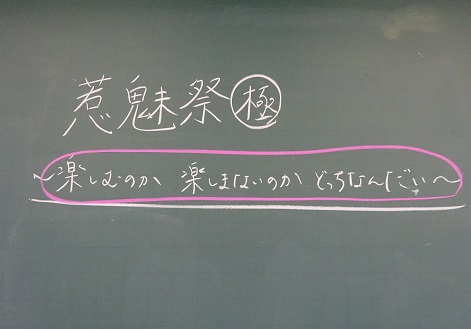 惹魅祭㊙極
～楽しむのか 楽しまないのか どっちなんだい～